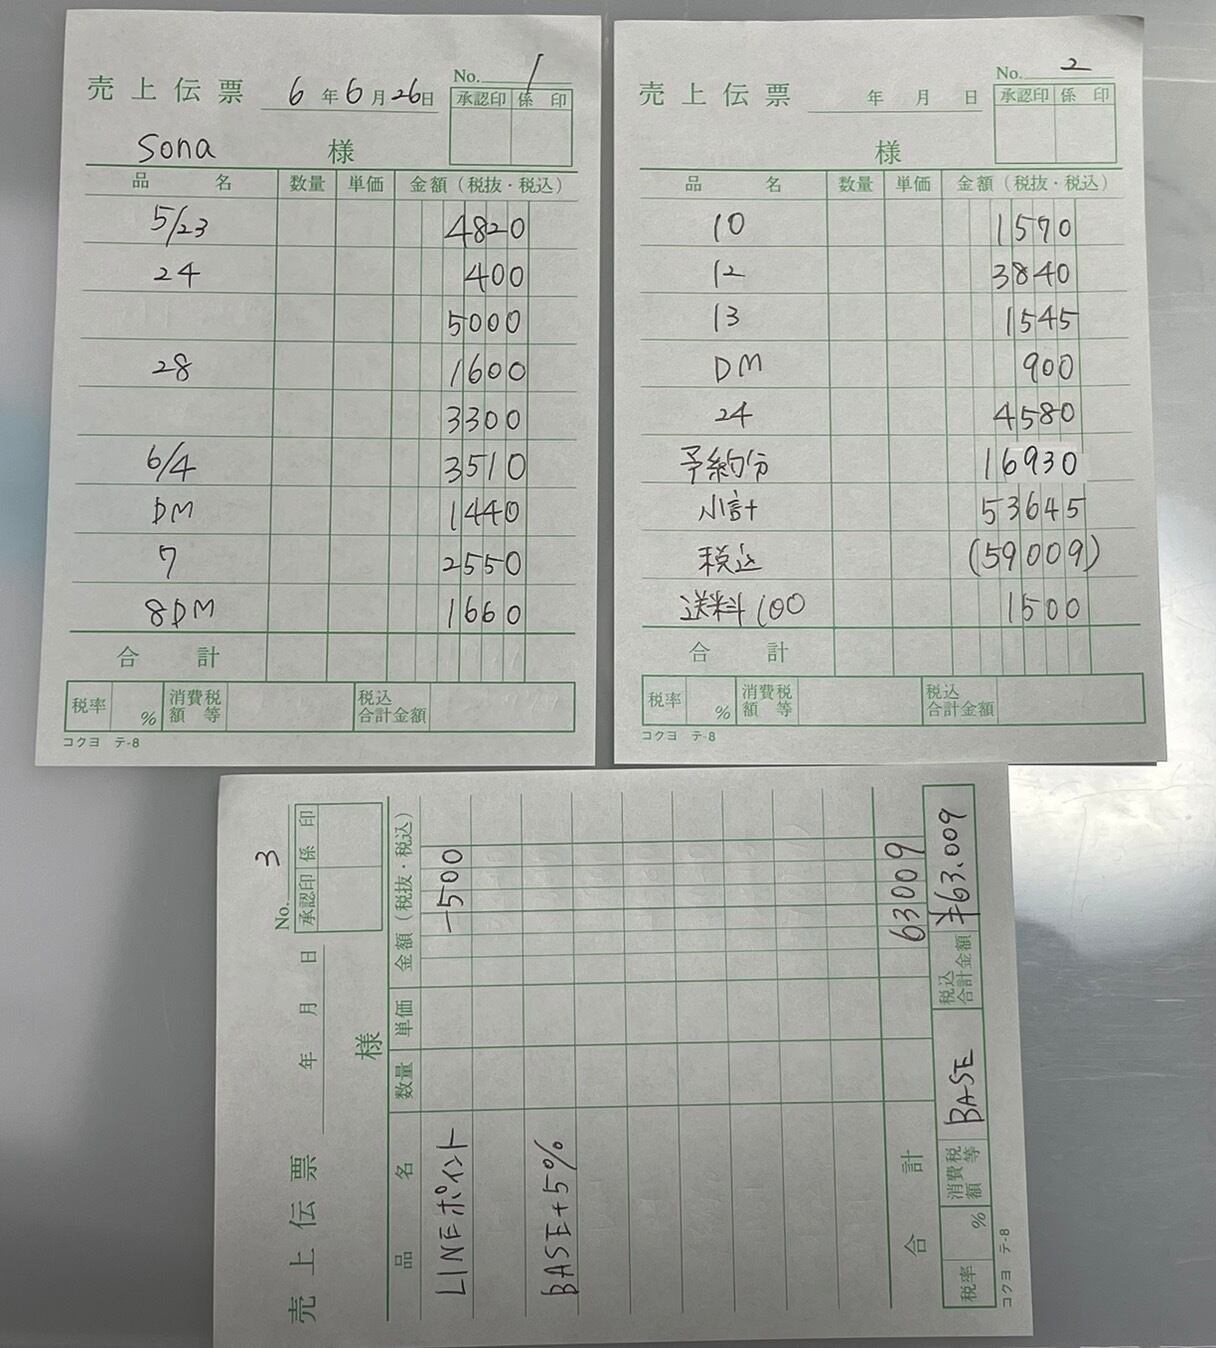 売上伝票 6年6月26日 No. 1
承認印 係印
Sona 様
品名 数量 単価 金額(税抜・税込)
5/23 4820
24 400
5000
28 1600
3300
6/4 3510
DM 1440
7 2550
8DM 1660
合計
税率 % 消費税額等 税込合計金額
コクヨ テ-8
売上伝票 年 月 日 No. 2
承認印 係印
様
品名 数量 単価 金額(税抜・税込)
10 1570
12 3840
13 1545
DM 900
24 4580
予約分 16930
小計 53645
税込 (59009)
送料100 1500
合計
税率 % 消費税額等 税込合計金額
コクヨ テ-8
売上伝票 年 月 日 No. 3
承認印 係印
様
品名 数量 単価 金額(税抜・税込)
LINEポイント -500
BASE+5%
合計 63009
税率 % 消費税額等 BASE 税込合計金額 ¥63.009
コクヨ テ-8